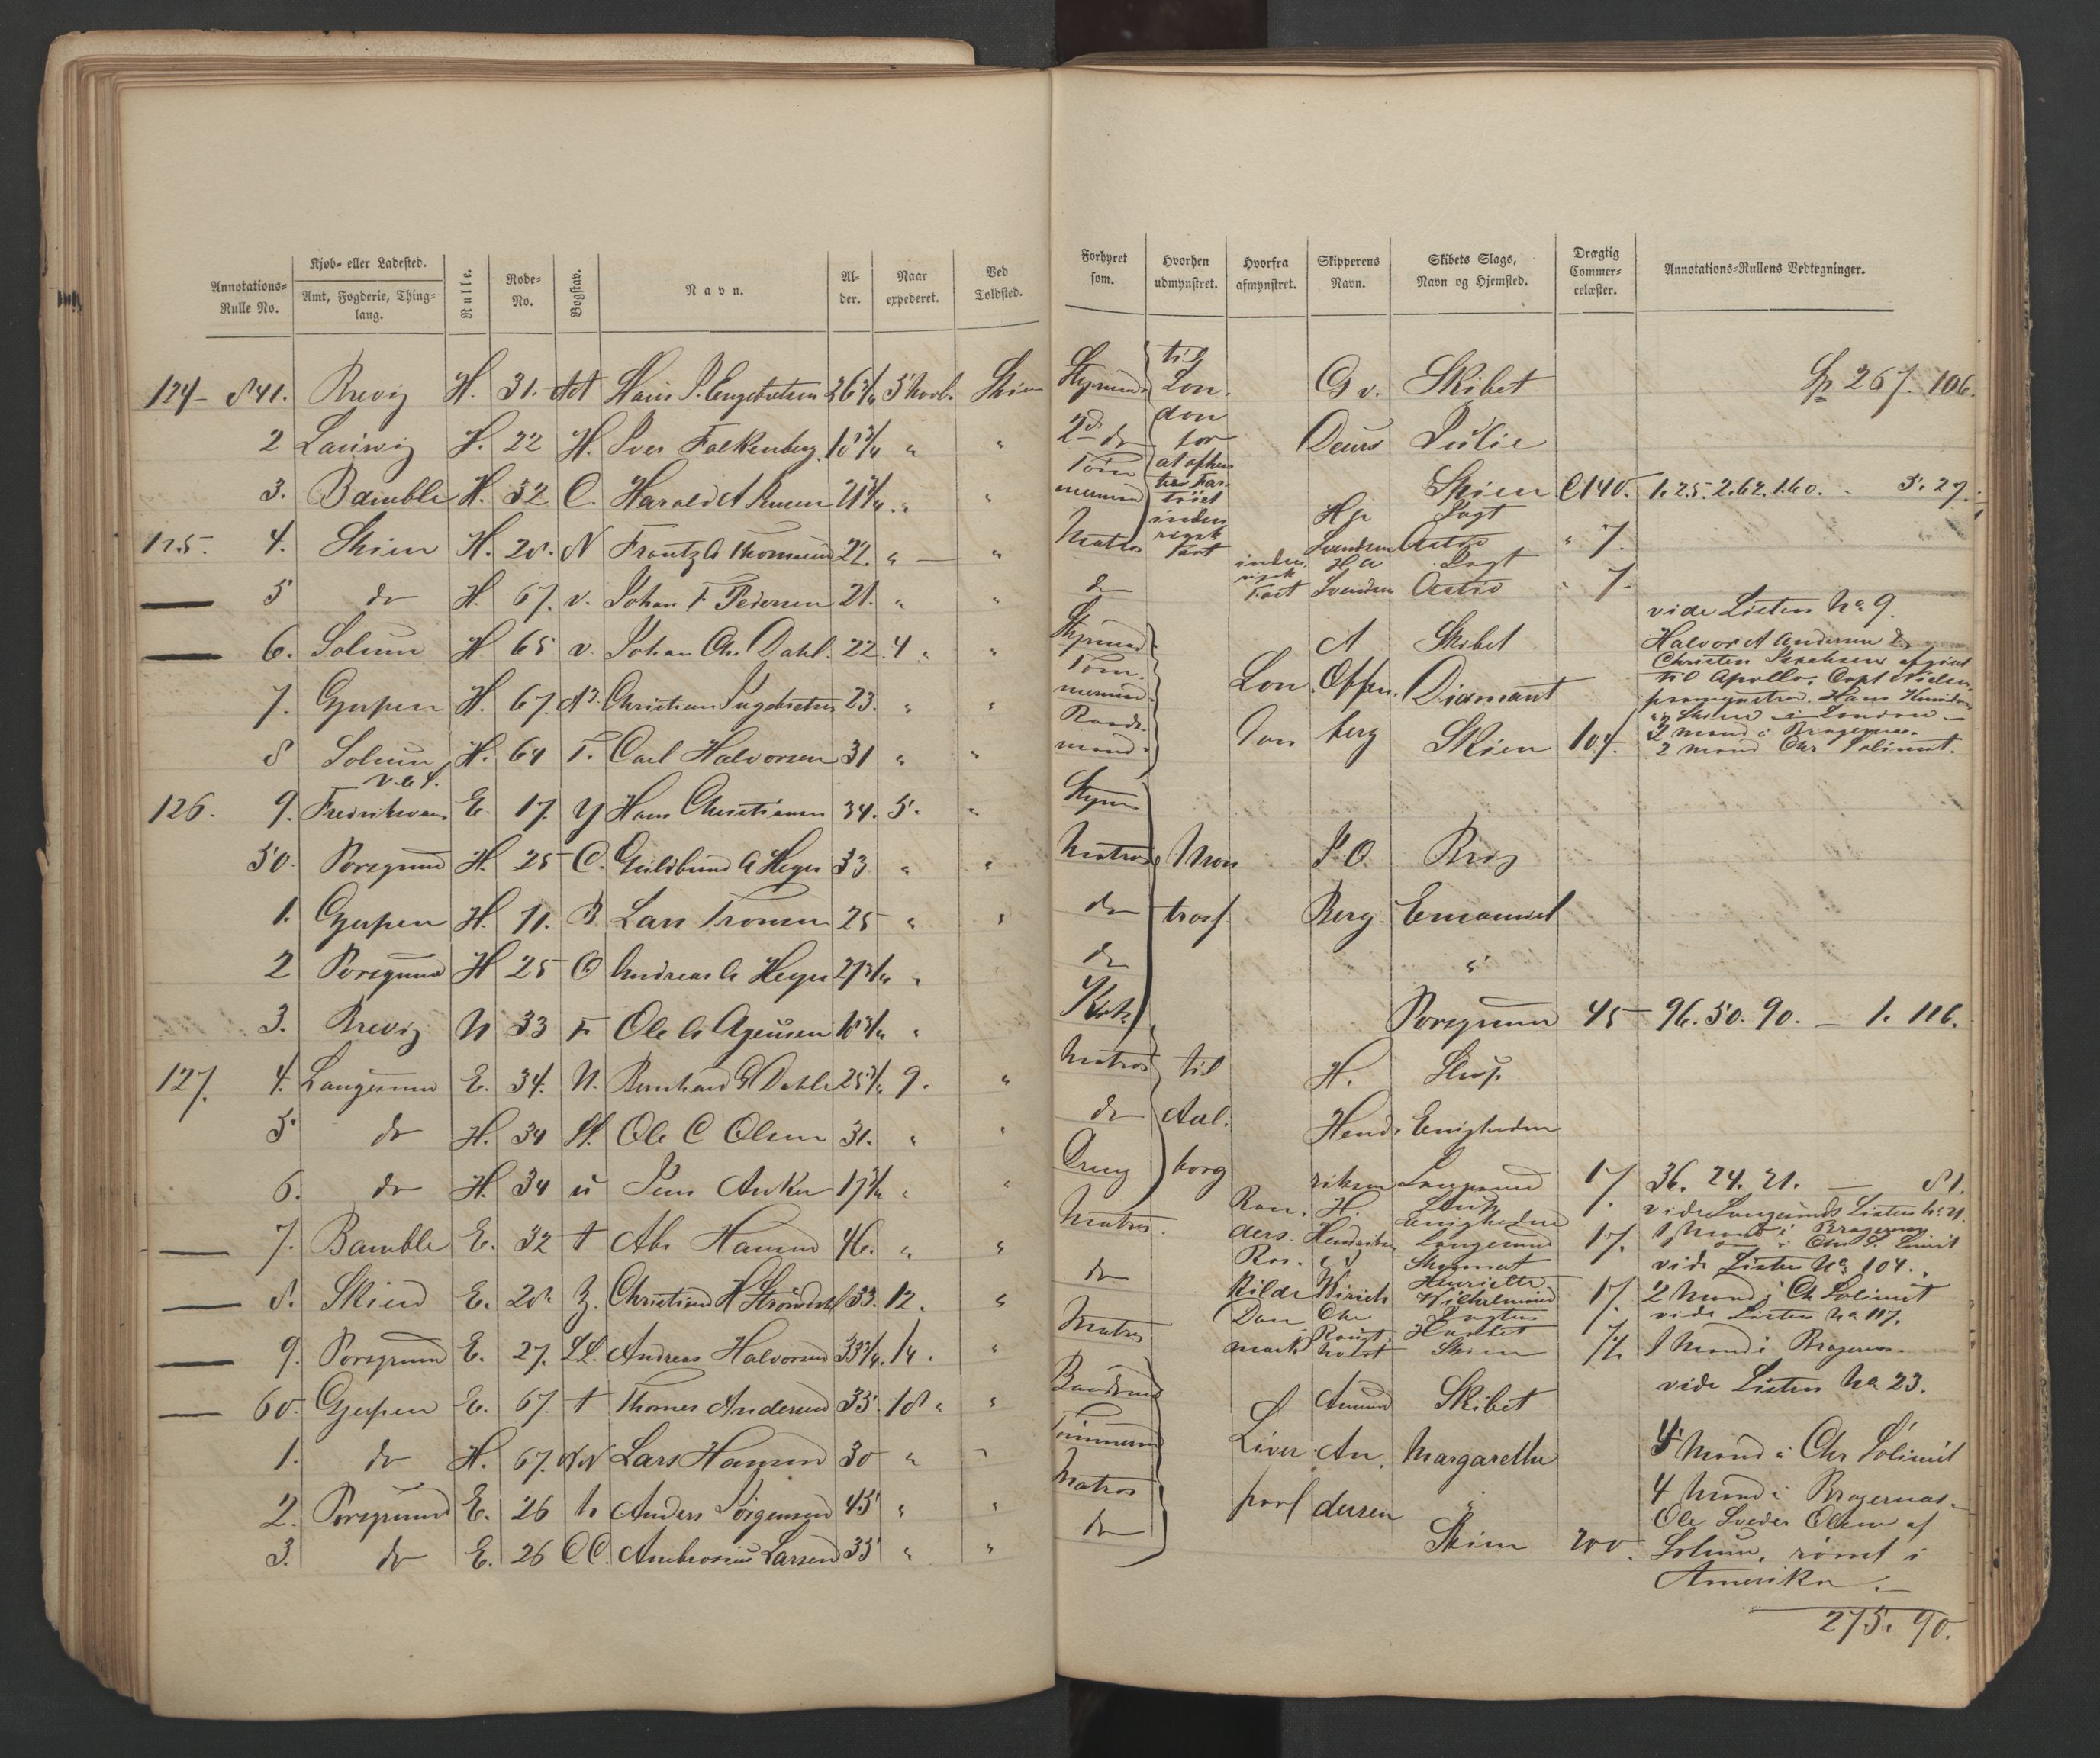 Annotations-Rulle No. Kjøb- eller Ladested. Amt, Fogderie, Thinglaug. Rulle. Rode-No. Bogstav. Navn. Alder. Naar expederet. Ved Toldsted.
124 841. Brevig H. 31. AA Hans P. Engebretsen 26 3/4 5 Novb. Skien
2 Laurvig H. 22 H. Iver Falkenberg 18 3/4 " "
3. Bamble H. 32 C. Harald A 21 3/4 " "
125. 4. Skien H. 28. N Frantz A Thommesen 22 " — "
— 5 do H. 67. v. Johan F. Pedersen 21. " "
— 6. Solum H 65 v. Johan Chr. Dahl. 22. 4 " "
7. Gjerpen H. 67. Christian Ingebretsen 23. " "
8 Solum H. 64 T. Carl Halvorsen 31 " "
126. 9. Fredriksværn E. 17. Y Hans Christiansen 34. 5. "
50. Porsgrund H. 25 C. Guldbrand A Heyer 33 " "
1. Gjerpen H. 11. B. Lars Tronsen 25 " "
2 Porsgrund H 25 O Andreas A Heyer 27 3/4 "
3. Brevig N 33 F. Ole A Agersen 18 3/4 "
127. 4. Langesund E. 34. N. Bernhard G Dahle 25 3/4 9. "
5 do H. 34 Ole C Olsen 31. " "
6. do H. 34 u Jens Anker 17 3/4 " "
— 7. Bamble E. 32 t Abr Hansen 46. " "
— 8. Skien E. 28 Z. Christian H Strømdahl 33. 12. "
— 9. Porsgrund E. 27. LL. Andreas Halvorsen 33 3/4 14. "
— 60. Gjerpen E. 67. t Thomas Andersen 35. 18 " "
1. do H. 67. NN Lars Hansen 30 " "
2. Porsgrund E. 26 h Anders Jørgensen 45 " "
3. do E. 26 CC. Ambrosius Larsen 35 " "
Forhyret som. Hvorhen udmynstret. Hvorfra afmynstret. Skipperens Navn. Skibets Slags, Navn og Hjemsted. Drægtig Commercelæster. Annotations-Rullens Vedtegninger.
Styrmand til London G v. Skibet Sp 267. 106.
2d do for Deurs Julie
Tømmermand Skien C 140. 1.25. 2.62. 1.60. - 5. 27.
Matros indenrigsk Fart H A Svendsen Jagt " 7.
do indenrigsk Fart H A Svendsen Jagt " 7.
vide Listen No 9.
Styrmand A Skibet Halvor A Andersen &
Tømmermand London Offenberg Diamant Christen Isaksen afgaaet
til Apollo, Capt Nielsen,
Baadsmand Skien 104. 2 mand i Bragernæs.
2 mand Chr Polimit.
Styrm
Matros Mon P. O. Brig
do trosf Berg. Emanuel
do "
Kok Porsgrund 45 96. 50. 90. — 1. 116.
Matros til H. Slup
do Aalborg Hendriksen Enigheden
Dreng Langesund 17. 36. 24. 21. — 81.
vide Langesunds Listen No 21.
Matros Randers H. Hendriksen Slup Enigheden Langesund 17. 1 Mand i Bragernæs
vide Listen No 104.
do Roskilde Hirsch Henriette Wilhelmine 17. 2 Mand i Chr Polimit
vide Listen No 117.
Matros Danmark Chr Jagten Haabet Skien 7 1/2 1 Mand i Bragernæs
vide Listen No 23.
Baadsmand Liverpool Amund Andersen Skibet
Tømmermand Margarethe 4 Mand i Chr Polimit
Matros " 4 Mand i Bragernæs.
do Skien 200. Ole Sveder Olsen af
Solum, rømt i
Amerika. —
275. 90.